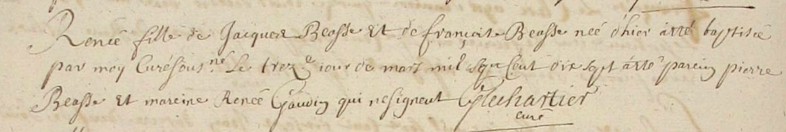 Renée fille de Jacques Beasse et de françoise Beasse née d'hier a esté baptisée
par moy Curé souss.né Le trez.e jour de mars mil sept Cent dix sept a esté parein pierre
Beasse et mareine Renée Gaudin qui ne signent G Lechartier
curé